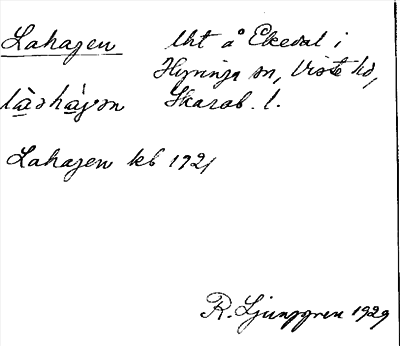 Lahagen lht å Ekedal i
Hyringa sn, Viste hd,
làshágen Skarab. l.
Lahagen kb 1721
R. Ljunggren 1929